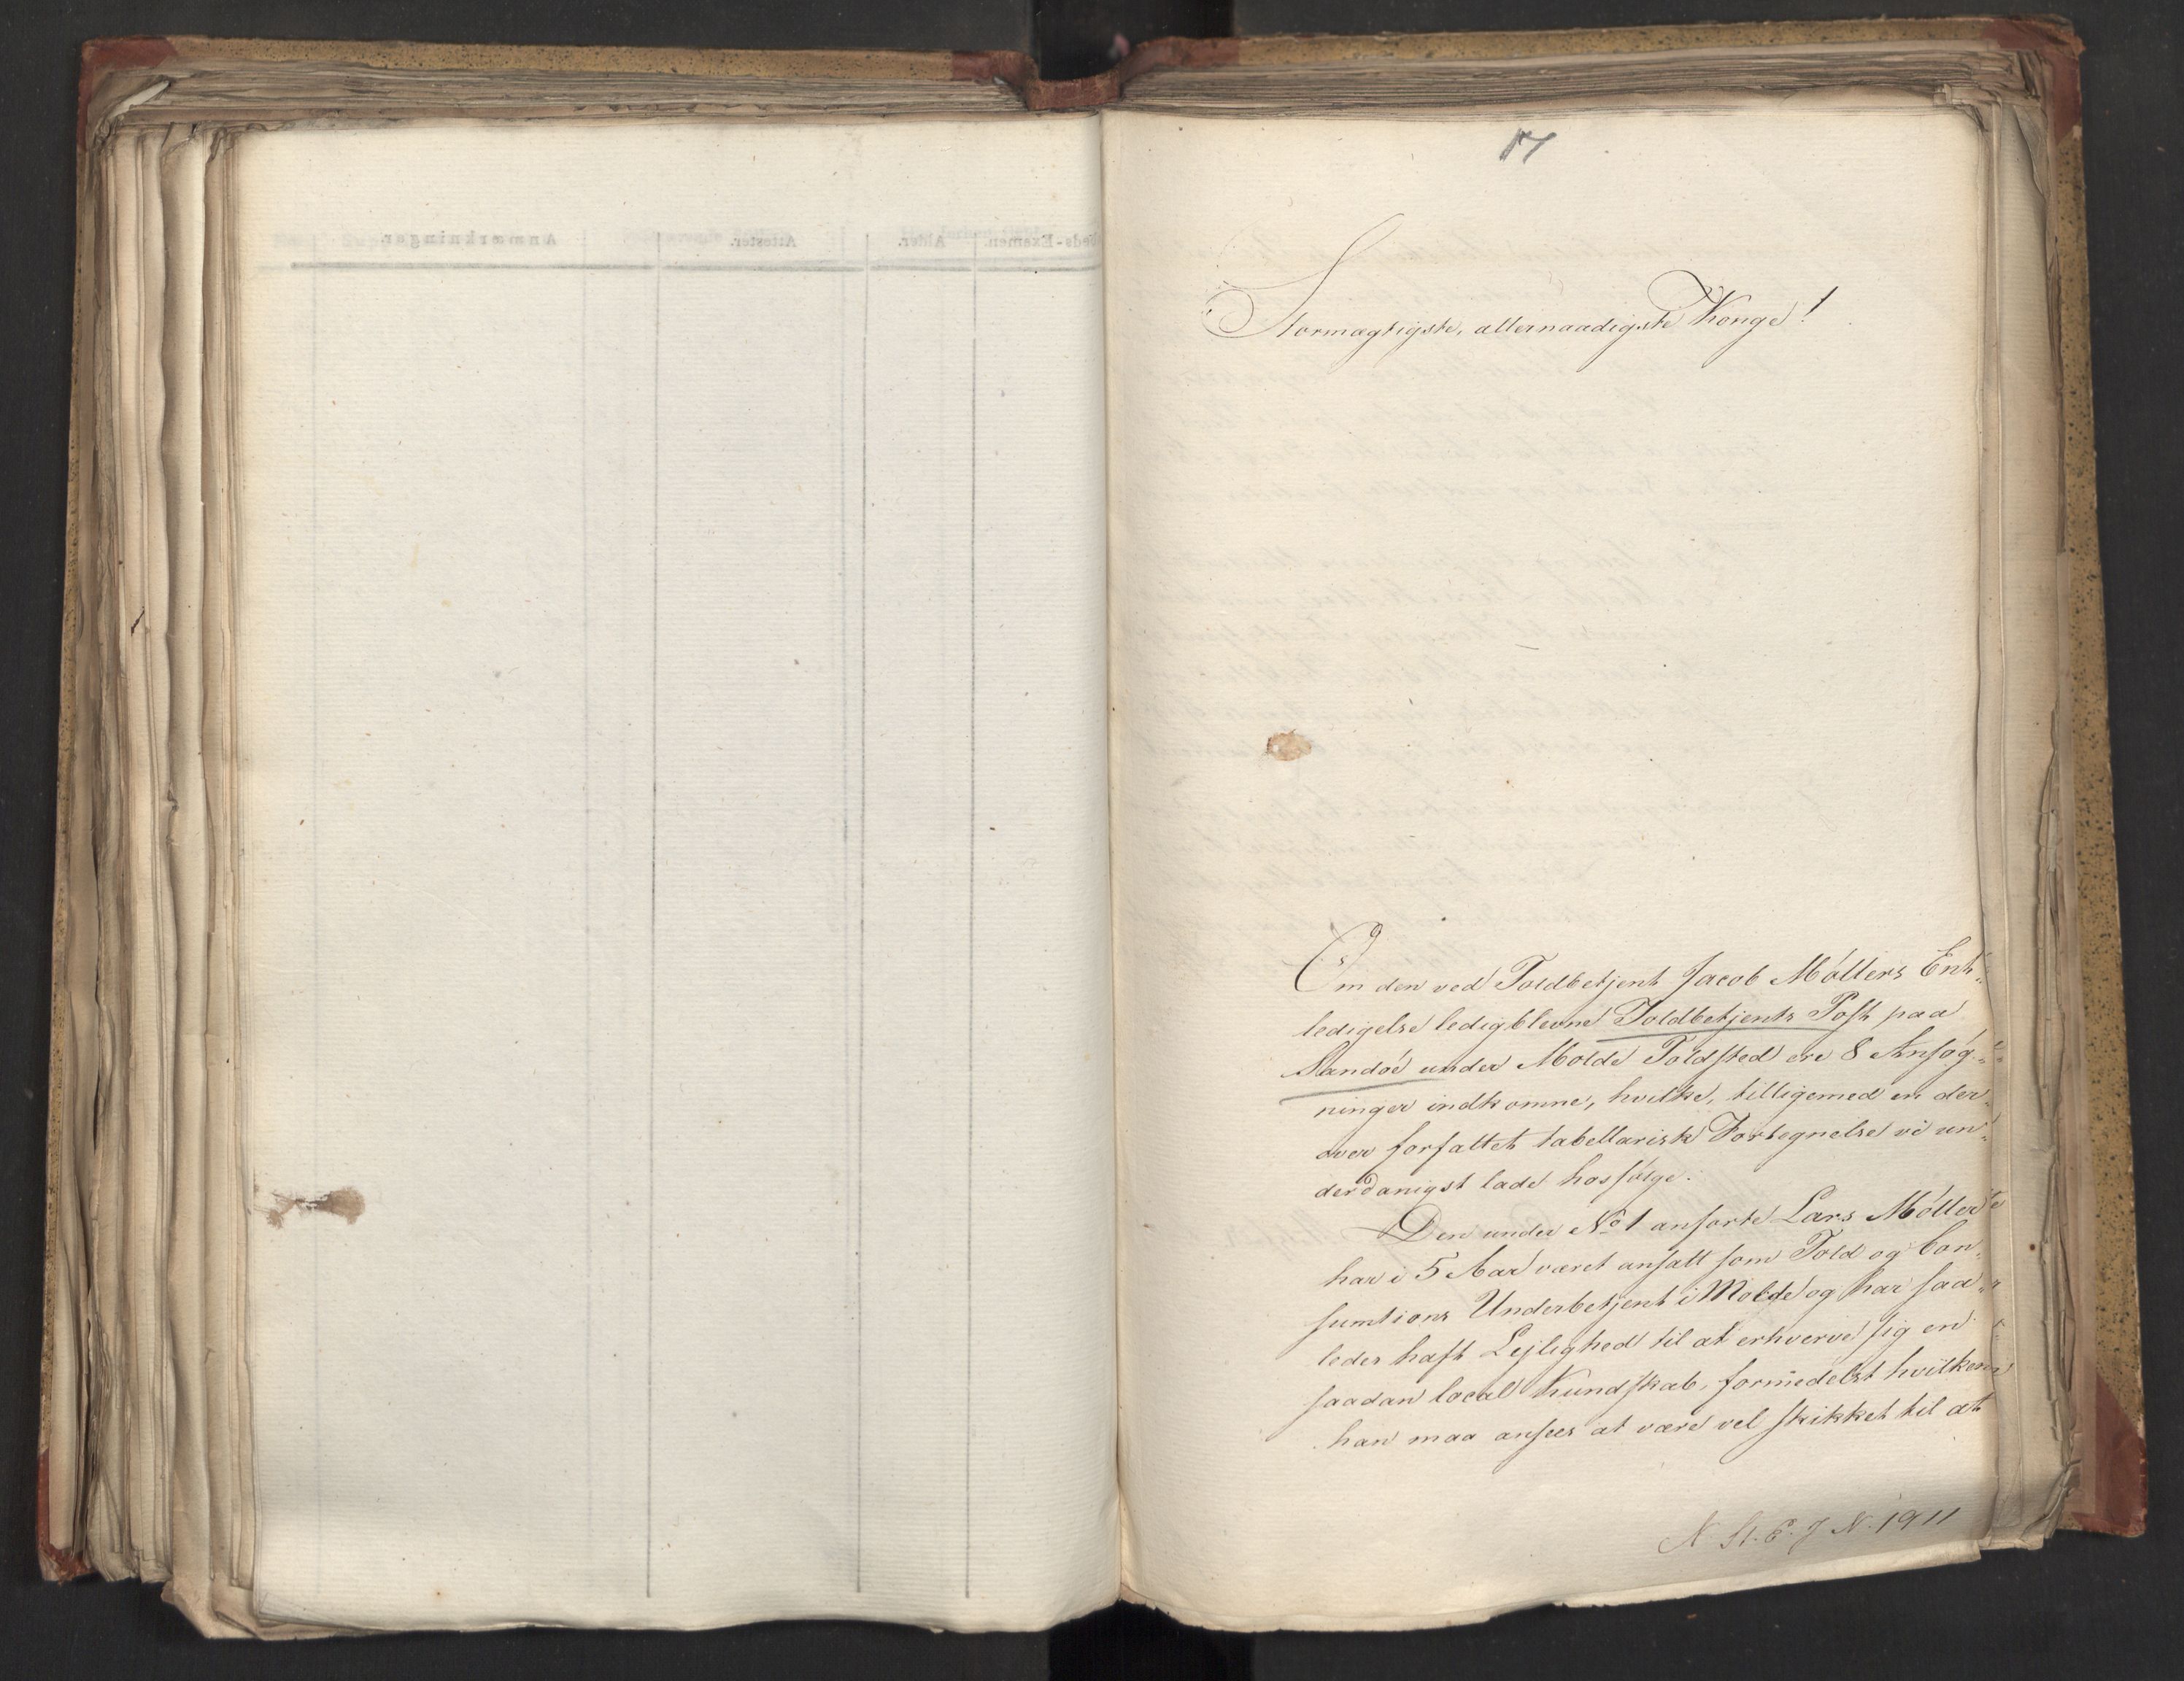 17
Stormægtigste, allernaadigste Konge!
Om den ved Toldbetjent Jacob Möllers Ent-
ledigelse ledigblevne Toldbetjents Post paa
Sandöe under Molde Toldsted ere 8 Ansøg-
ninger indkomne, hvilke, tilligemed en der-
over forfattet tabellarisk Fortegnelse vi un-
derdanigst lade hosfølge.
Den under No 1 anførte Lars Möller
har i 5 Aar været ansatt som Told og Con-
sumtions Underbetjent i Molde og har saa-
ledes haft Lejlighed til at erhverve sig en
saadan local Kundskab, formedelst hvilken
han maa ansees at være vel skikket til at
N. St. E. J. N. 1911